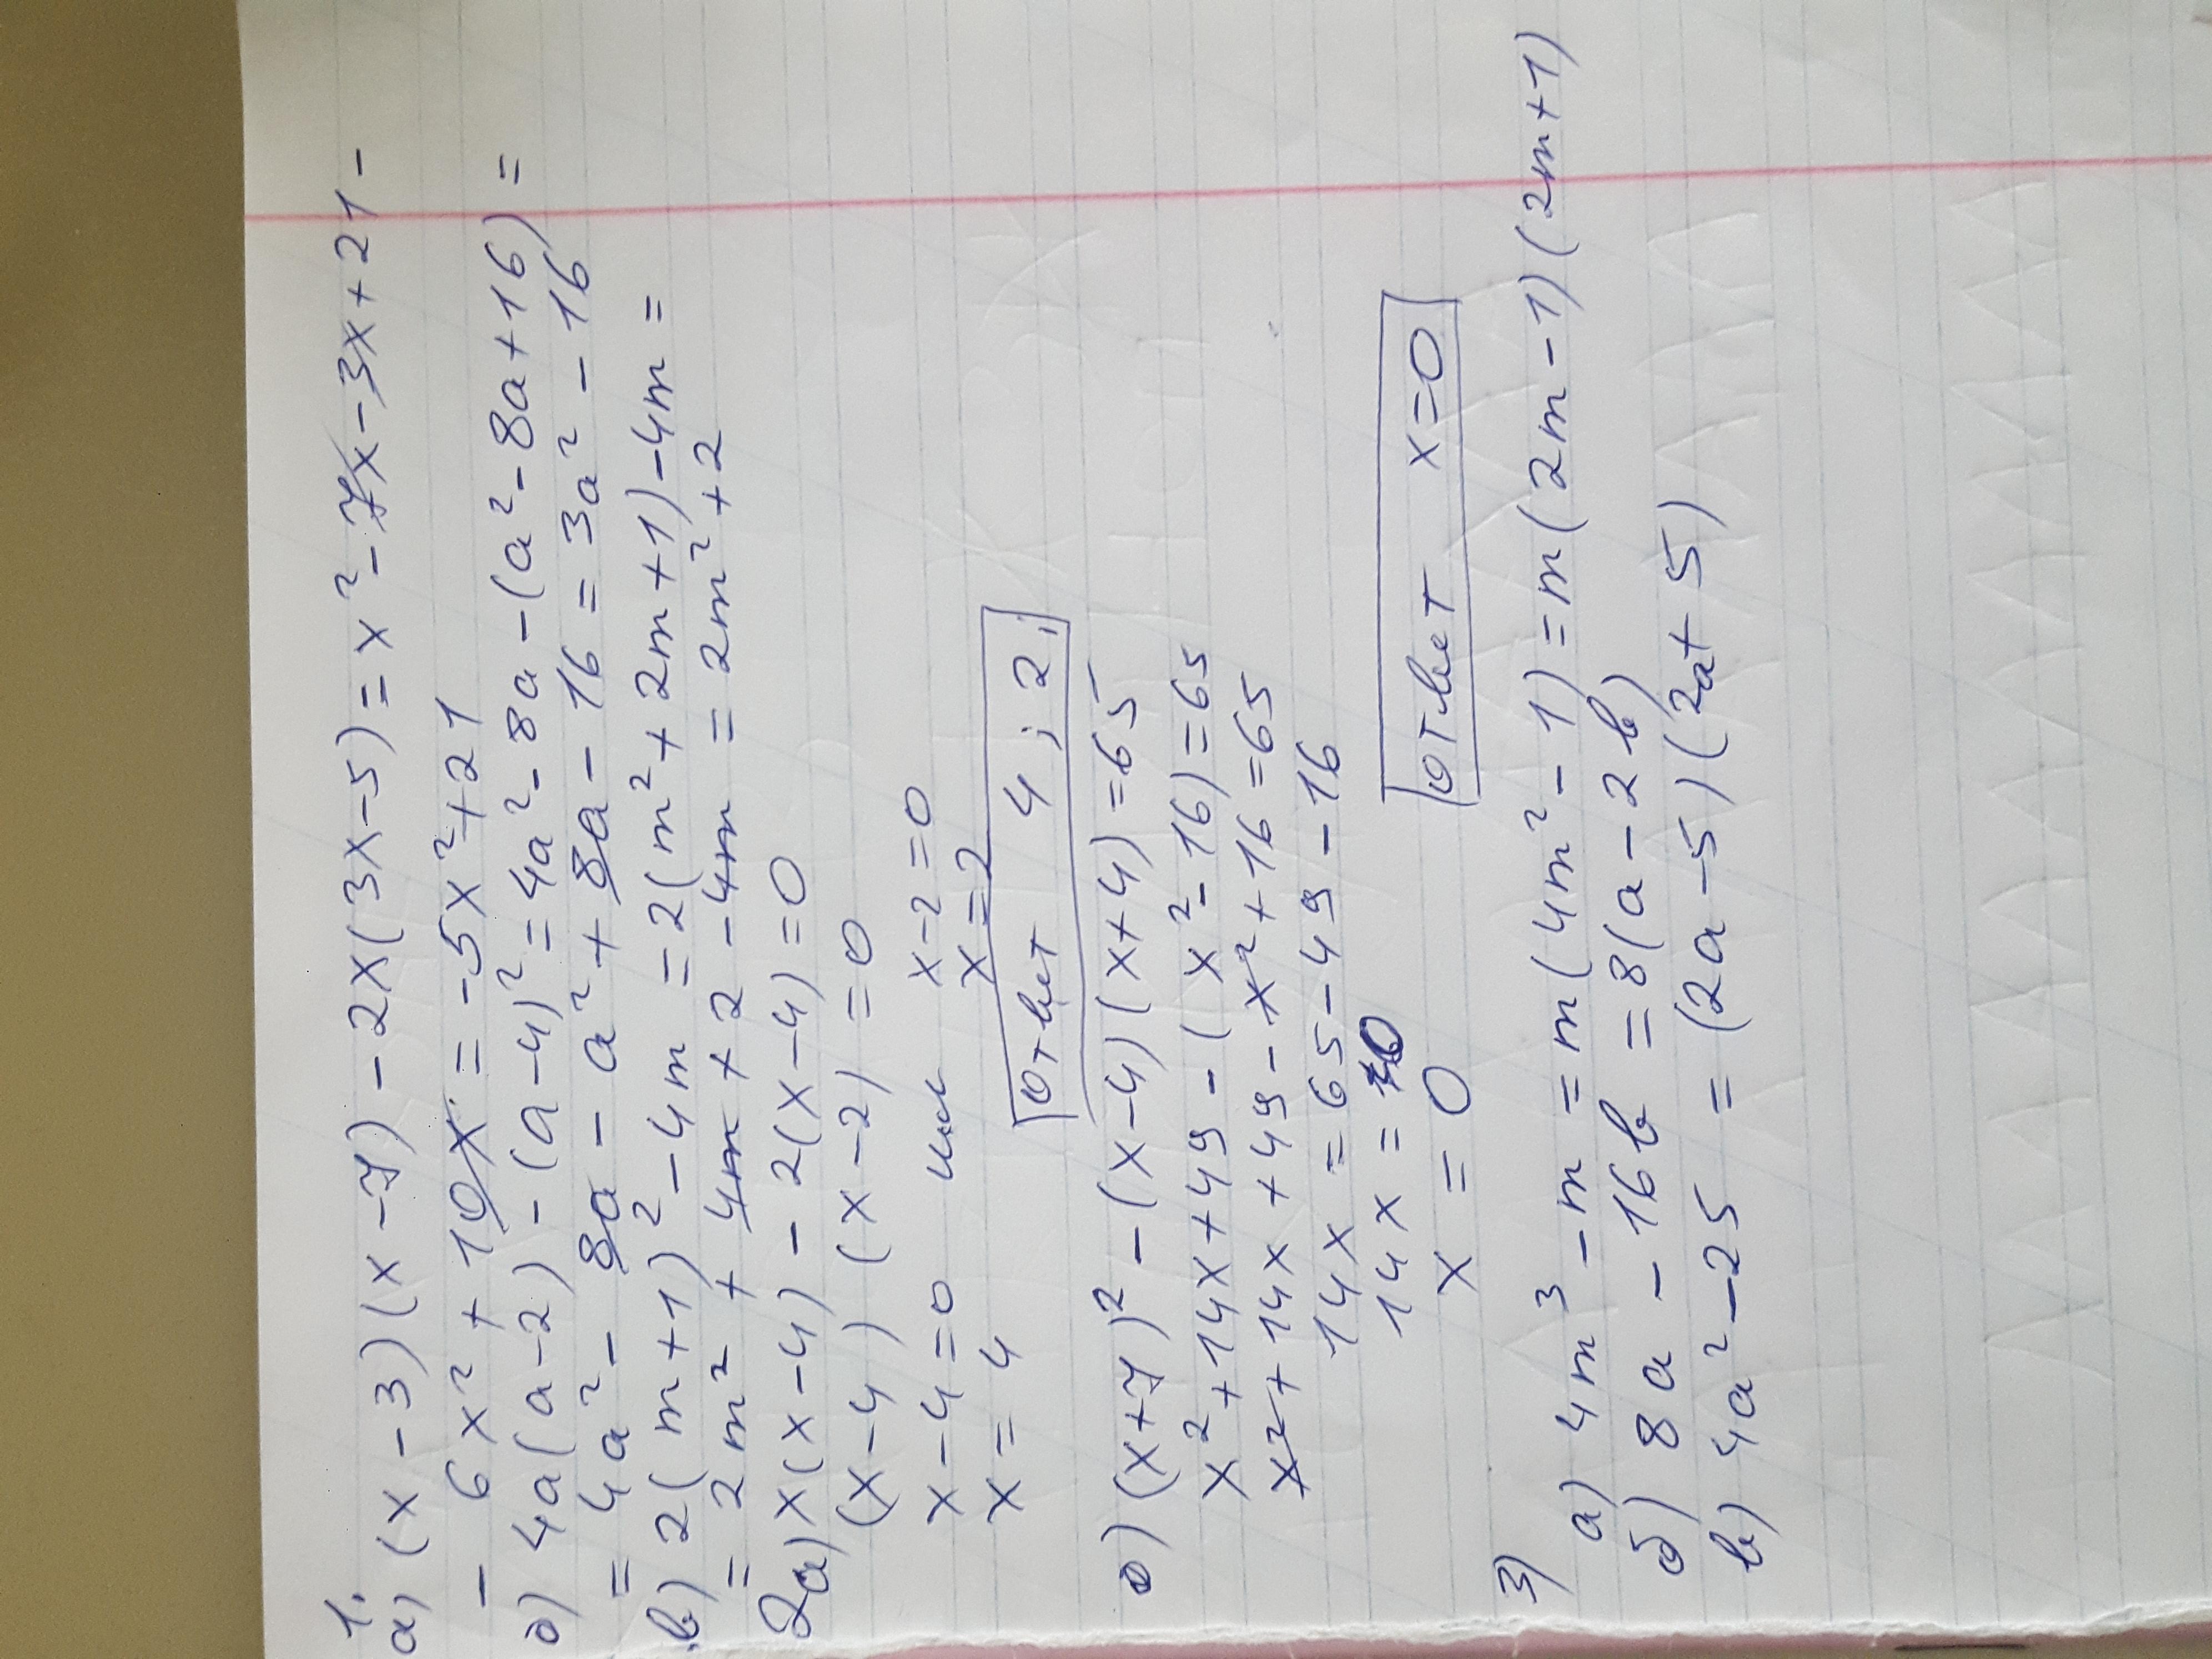 1.
а) (x-3)(x-7)-2x(3x-5)=x²-7x-3x+21-
- 6x²+10x=-5x²+21
б) 4a(a-2)-(a-4)²=4a²-8a-(a²-8a+16)=
= 4a²-8a-a²+8a-16=3a²-16
в) 2(m+1)²-4m=2(m²+2m+1)-4m=
= 2m²+4m+2-4m=2m²+2
2а) x(x-4)-2(x-4)=0
(x-4)(x-2)=0
x-4=0 или x-2=0
x=4 x=2
Ответ 4; 2.
б) (x+7)²-(x-4)(x+4)=65
x²+14x+49-(x²-16)=65
x²+14x+49-x²+16=65
14x=65-49-16
14x=0
x=0
Ответ x=0
3)
а) 4m³-m=m(4m²-1)=m(2m-1)(2m+1)
б) 8a-16b=8(a-2b)
в) 4a²-25=(2a-5)(2a+5)